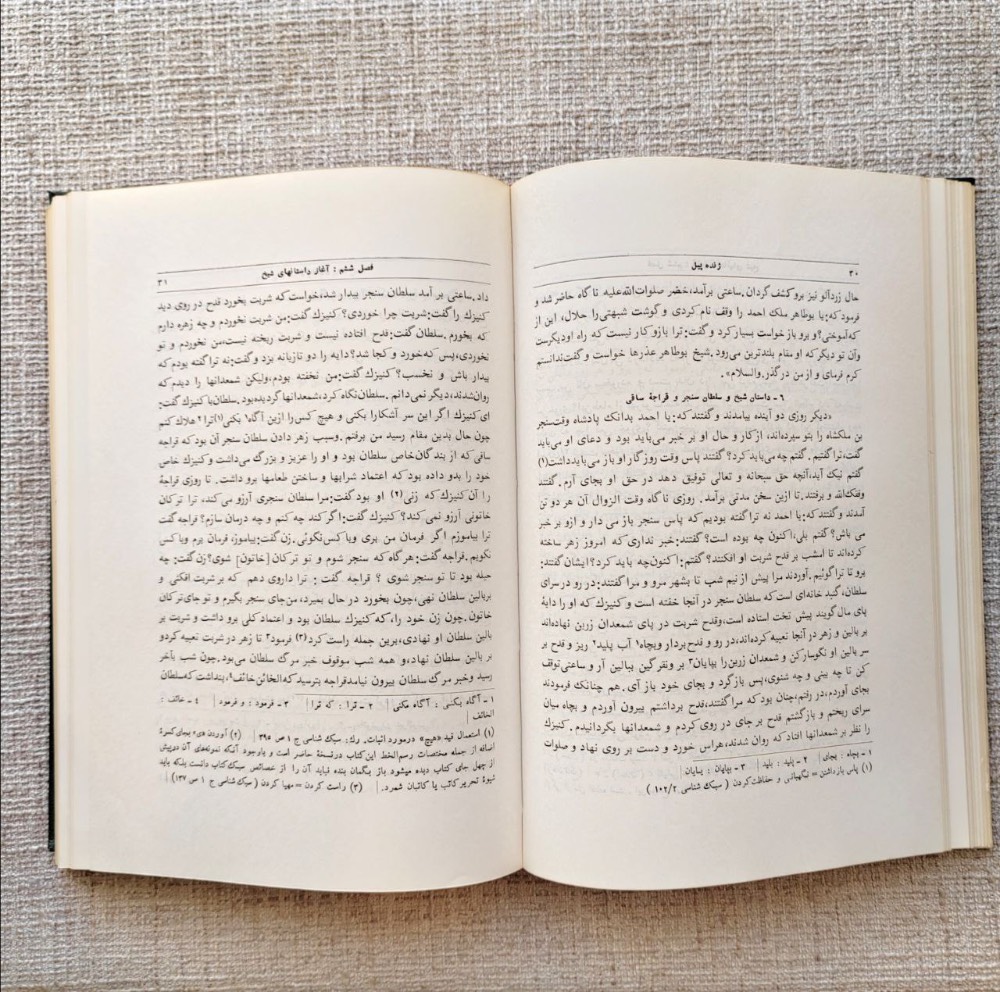 ۳۰
ژنده پیل
حال زردآلو نیز بروکشف گردان. ساعتی برآمد، خضر صلوات‌الله‌علیه ناگاه حاضر شد و
فرمود که: یا بوطاهر ملک احمد را وقف نام کردی و گوشت شبهتی را حلال، این از
که آموختی؟ و برو بازخواست بسیار کرد و گفت: ترا با زو کار نیست که راه او دیگرست
و آن تو دیگر که او مقام بلندترین می‌رود. شیخ بوطاهر عذرها خواست و گفت ندانستم
کرم فرمای و از من درگذر. والسلام».
۶ - داستان شیخ و سلطان سنجر و قراجهٔ ساقی
«دیگر روزی دو آینده بیامدند و گفتند که: یا احمد بدانک پادشاه وقت سنجر
بن ملکشاه را بتو سپرده‌اند، از کار و حال او بر خبر می‌باید بود و دعای او می‌باید
گفت، تراگفتیم. گفتم چه می‌باید کرد؟ گفتند پاس وقت روزگار او باز می‌باید داشت(۱)
گفتم نیک آید، آنچه حق سبحانه و تعالی توفیق دهد در حق او بجای آرم. گفتند
وفقک‌الله و برفتند. تا ازین سخن مدتی برآمد. روزی ناگاه وقت الزوال آن هر دو تن
آمدند و گفتند که: یا احمد نه تراگفته بودیم که پاس سنجر باز می دار و ازو بر خبر
می باش؟ گفتم بلی، اکنون چه بوده است؟ گفتند: خبر نداری که امروز زهر ساخته
کرده‌اند تا امشب بر قدح شربت او افکنند؟ گفتم: اکنون چه باید کرد؟ ایشان گفتند:
برو تا ترا گوئیم. آوردند مرا پیش از نیم شب تا بشهر مرو و مرا گفتند: در رو در سرای
سلطان، گنبد خانه‌ای است که سلطان سنجر در آنجا خفته است و کنیزک که او را دایهٔ
پای مال گویند پیش تخت استاده است، و قدح شربت در پای شمعدان زرین نهاده‌اند
بر بالین و زهر در آنجا تعبیه کرده‌اند، در رو و قدح بردار و بچاه۱ آب پلید۲ ریز و قدح بر
سر بالین او نگوسار کن و شمعدان زرین را بپایان۳ بر و نفرگین ببالین آر و ساعتی توقف
کن تا چه بینی و چه شنوی، پس بازگرد و بجای خود باز آی. هم چنانک فرمودند
بجای آوردم، در رفتم، چنان بود که مرا گفتند، قدح برداشتم بیرون آوردم و بچاه میان
سرای ریختم و بازگشتم قدح بر جای در روی کردم و شمعدانها بگردانیدم. کنیزک
را نظر بر شمعدانها افتاد که روان شدند، هراس خورد و دست بر روی نهاد و صلوات
۱ - بچاه : بجای | ۲ - پلید : بلید | ۳ - بپایان : بیابان |
(۱) پاس بازداشتن = نگهبانی و حفاظت کردن ( سبک شناسی ۱۰۲/۲ )
فصل ششم : آغاز داستانهای شیخ
۳۱
داد. ساعتی بر آمد سلطان سنجر بیدار شد، خواست که شربت بخورد قدح در روی دید
کنیزک را گفت: شربت چرا خوردی؟ کنیزک گفت: من شربت نخوردم و چه زهره دارم
که بخورم. سلطان گفت: قدح افتاده نیست و شربت ریخته نیست، من نخوردم و تو
نخوردی، پس که خورد و کجا شد؟ دایه را دو تازیانه بزد و گفت: نه تراگفته بودم که
بیدار باش و نخسب؟ کنیزک گفت: من نخفته بودم، ولیکن شمعدانها را دیدم که
روان شدند، دیگر نمی دانم. سلطان نگاه کرد، شمعدانها گردیده بود. سلطان با کنیزک گفت:
ای کنیزک اگر این سر آشکارا بکنی و هیچ کس را ازین آگاه۱ بکنی(۱) ترا۲ هلاک کنم
چون حال بدین مقام رسید من برفتم. و سبب زهر دادن سلطان سنجر آن بود که قراجه
ساقی که از بندگان خاص سلطان بود و او را عزیز و بزرگ می‌داشت و کنیزک خاص
خود را بدو داده بود که اعتماد شرابها و ساختن طعامها برو داشت. روزی قراجهٔ
را آن کنیزک که زنی(۲) او بود گفت: مرا سلطان سنجری آرزو می کند، ترا ترکان
خاتونی آرزو نمی کند؟ کنیزک گفت: اگر کند چه کنم و چه درمان سازم؟ قراجه گفت
ترا بیاموزم اگر فرمان من بری وباکس نگوئی. زن گفت: بیاموز، فرمان برم وباکس
نگویم. قراجه گفت: هرگاه که سنجر شوم و تو ترکان [خاتون] شوی؟ زن گفت: چه
حیله بود تا تو سنجر شوی ؟ قراجه گفت : ترا داروی دهم که بر شربت افکنی و
بر بالین سلطان نهی، چون بخورد در حال بمیرد، من جای سنجر بگیرم و تو جای ترکان
خاتون. چون زن خود را، که کنیزک سلطان بود و اعتماد کلی برو داشت و شربت بر
بالین سلطان او نهادی، برین جمله راست کرد(۳) فرمود۳ تا زهر در شربت تعبیه کرد و
بر بالین سلطان نهاد، و همه شب موقوف خبر مرگ سلطان می‌بود. چون شب بآخر
رسید و خبر مرگ سلطان بیرون نیامد قراجه بترسید که الخائن خائف۴، بنداشت که سلطان
۱ - آگاه بکنی : آگاه مکنی | ۲ - ترا : که ترا | ۳ - فرمود : و فرمود | ۴ - خائف :
الخائف |
(۱) استعمال قید «هیچ» درمورد اثبات. رک: سبک شناسی ج ۱ ص ۳۹۵ | (۲) آوردن «ی» بجای کسرهٔ
اضافه از جمله مختصات رسم‌الخط این کتاب درنسخهٔ حاضر است و باوجود آنکه نمونه‌های آن دربیش
از چهل جای کتاب دیده میشود باز بگمان بنده نباید آن را از خصائص سبک کتاب دانست بلکه باید
شیوهٔ تحریر کاتب یا کاتبان شمرد. | (۳) راست کردن = مهیا کردن ( سبک شناسی ج ۱ ص ۱۳۷) |